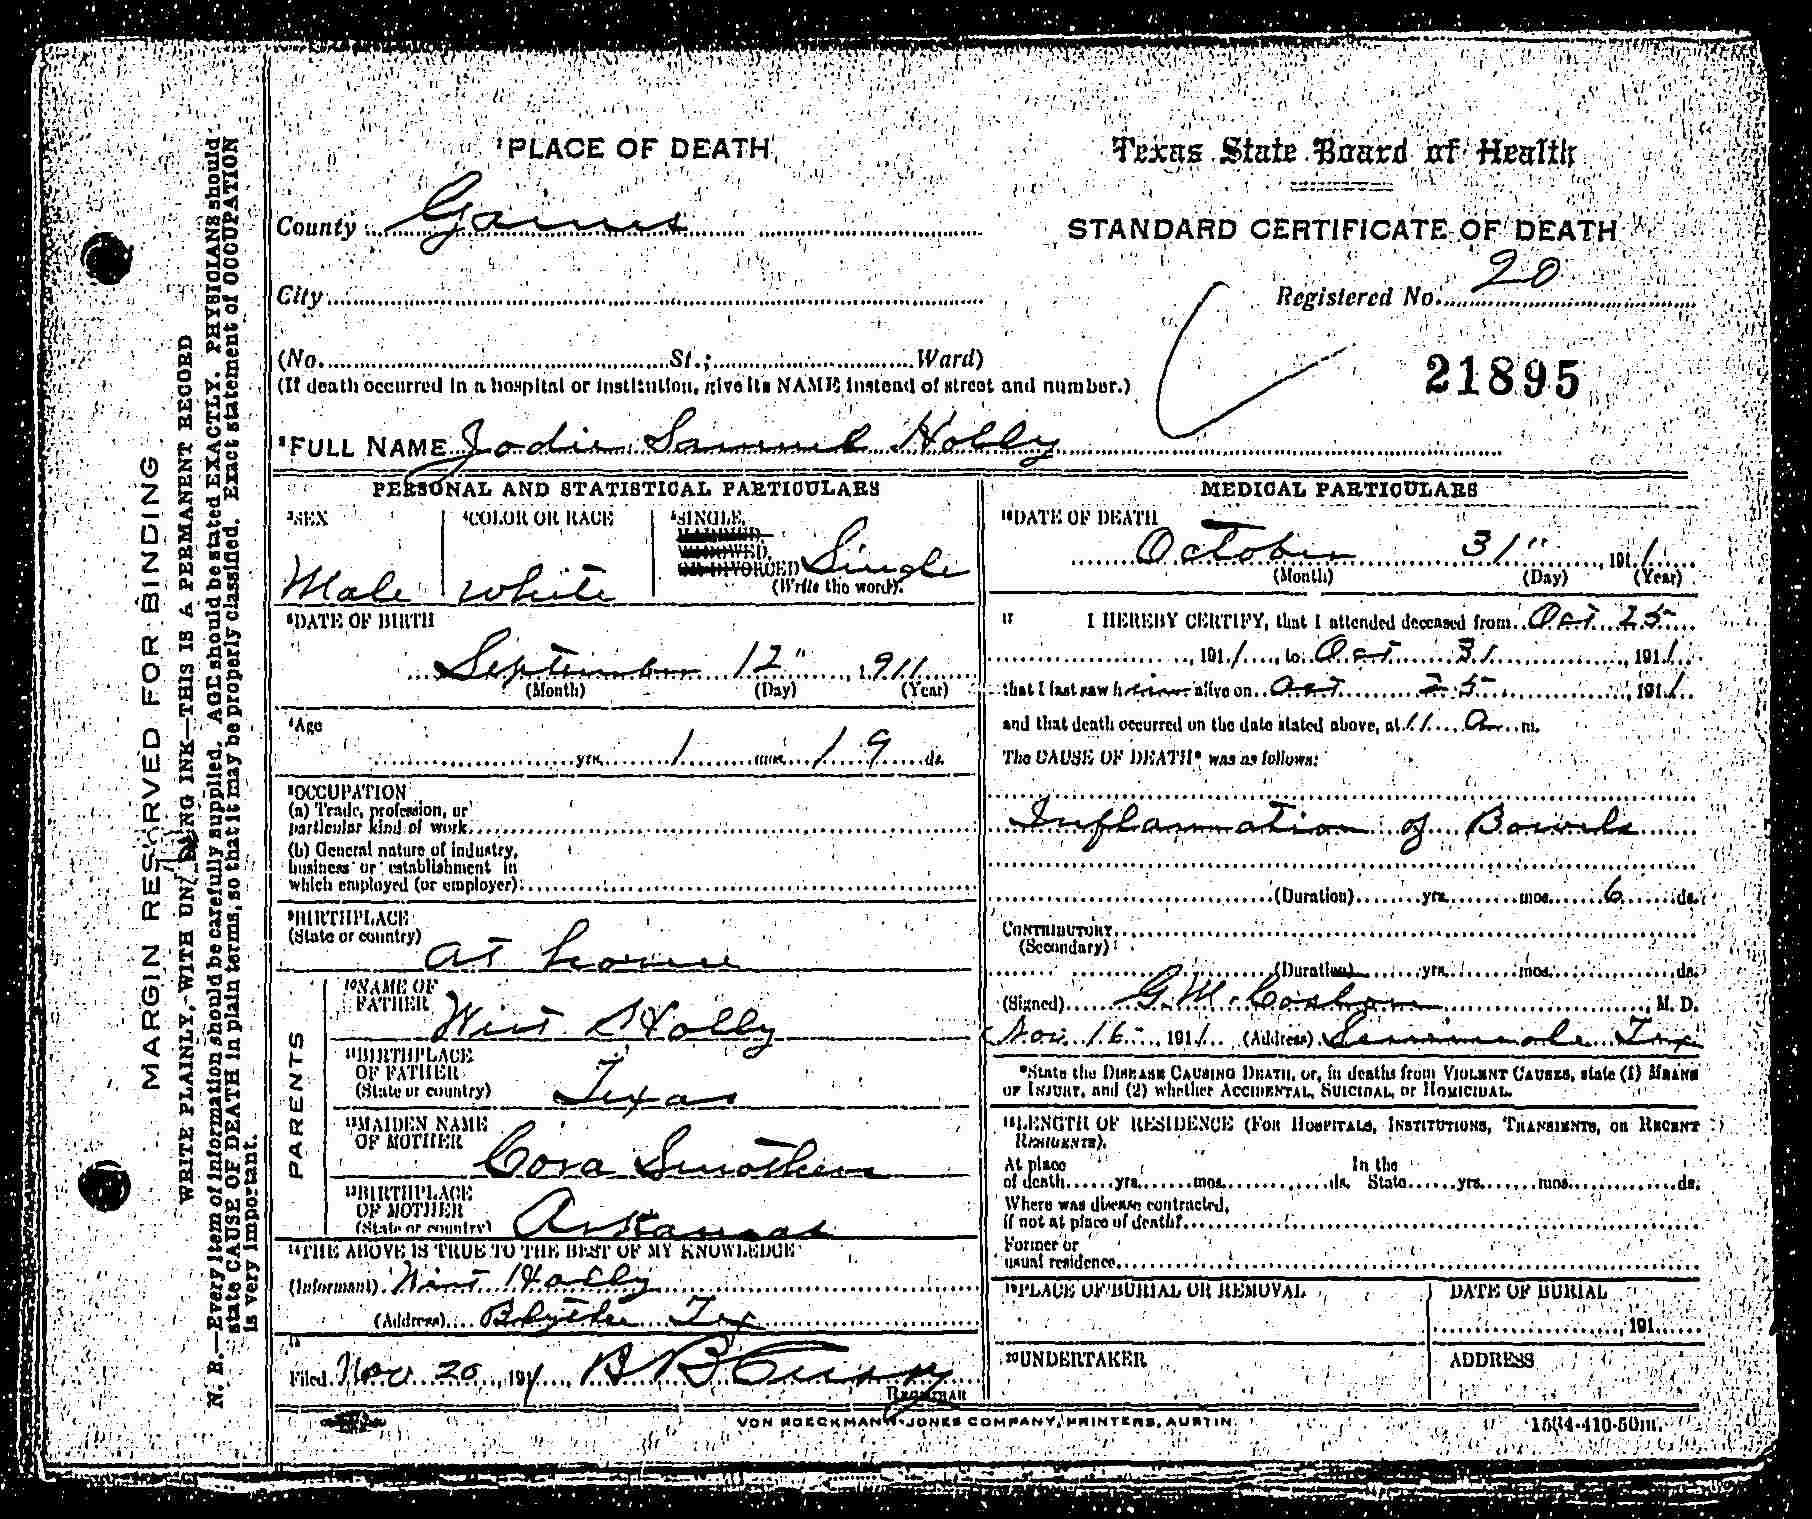 MARGIN RESERVED FOR BINDING
WRITE PLAINLY, WITH UNFADING INK—THIS IS A PERMANENT RECORD
N. B.—Every item of information should be carefully supplied. AGE should be stated EXACTLY. PHYSICIANS should
state CAUSE OF DEATH in plain terms, so that it may be properly classified. Exact statement of OCCUPATION
is very important.
1PLACE OF DEATH
County Gaines
City
(No. St.; Ward)
(If death occurred in a hospital or institution, give its NAME instead of street and number.)
Texas State Board of Health
STANDARD CERTIFICATE OF DEATH
Registered No. 20
21895
2FULL NAME Jodie Samuel Holly
PERSONAL AND STATISTICAL PARTICULARS
3SEX
Male
4COLOR OR RACE
White
5SINGLE,
MARRIED,
WIDOWED,
OR DIVORCED Single
(Write the word).
6DATE OF BIRTH
September 12" 1911
(Month) (Day) (Year)
7Age
yrs. 1 mos. 19 ds.
8OCCUPATION
(a) Trade, profession, or
particular kind of work
(b) General nature of industry,
business or establishment in
which employed (or employer)
9BIRTHPLACE
(State or country)
at home
PARENTS
10NAME OF
FATHER
Wint Holly
11BIRTHPLACE
OF FATHER
(State or country)
Texas
12MAIDEN NAME
OF MOTHER
Cora Smothers
13BIRTHPLACE
OF MOTHER
(State or country)
Arkansas
14THE ABOVE IS TRUE TO THE BEST OF MY KNOWLEDGE
(Informant) Wint Holly
(Address) Blythe Tex
15
Filed Nov 20, 1911, B B
REGISTRAR
MEDICAL PARTICULARS
16DATE OF DEATH
October 31", 1911
(Month) (Day) (Year)
17 I HEREBY CERTIFY, that I attended deceased from Oct 25
, 1911, to Oct 31, 1911
that I last saw him alive on Oct 25, 1911
and that death occurred on the date stated above, at 11 a m.
The CAUSE OF DEATH* was as follows:
Inflamation of Bowels
(Duration) yrs. mos. 6 ds.
CONTRIBUTORY
(Secondary)
(Duration) yrs. mos. ds.
(Signed) G.M. , M. D.
Nov. 16, 1911 (Address) Seminole Tex
*State the DISEASE CAUSING DEATH, or, in deaths from VIOLENT CAUSES, state (1) MEANS
OF INJURY, and (2) whether ACCIDENTAL, SUICIDAL, or HOMICIDAL.
18LENGTH OF RESIDENCE (FOR HOSPITALS, INSTITUTIONS, TRANSIENTS, OR RECENT
RESIDENTS).
At place of death yrs. mos. ds. In the State yrs. mos. ds.
Where was disease contracted,
if not at place of death?
Former or
usual residence
19PLACE OF BURIAL OR REMOVAL
DATE OF BURIAL
, 191
20UNDERTAKER
ADDRESS
VON BOECKMANN-JONES COMPANY, PRINTERS, AUSTIN.
1584-410-50m.